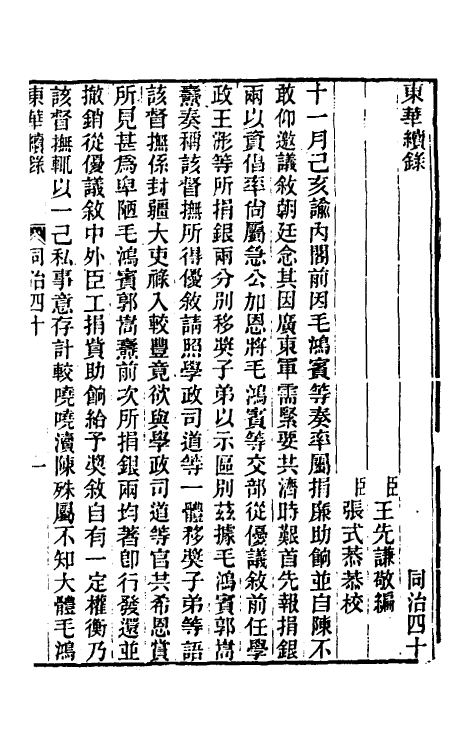 東華續錄
同治四十
臣王先謙敬編
臣張式恭恭校
十一月己亥諭內閣前因毛鴻賓等奏率屬捐廉助餉並自陳不
敢仰邀議敘朝廷念其因廣東軍需緊要共濟時艱首先報捐銀
兩以資倡率尙屬急公加恩將毛鴻賓等交部從優議敘前任學
政王㴋等所捐銀兩分別移奬子弟以示區別茲據毛鴻賓郭嵩
燾奏稱該督撫所得優敘請照學政司道等一體移奬子弟等語
該督撫係封疆大吏祿入較豐竟欲與學政司道等官共希恩賞
所見甚爲卑陋毛鴻賓郭嵩燾前次所捐銀兩均著卽行發還並
撤銷從優議敘中外臣工捐貲助餉給予奬敘自有一定權衡乃
該督撫輒以一己私事意存計較嘵嘵瀆陳殊屬不知大體毛鴻
東華續錄
同治四十
一